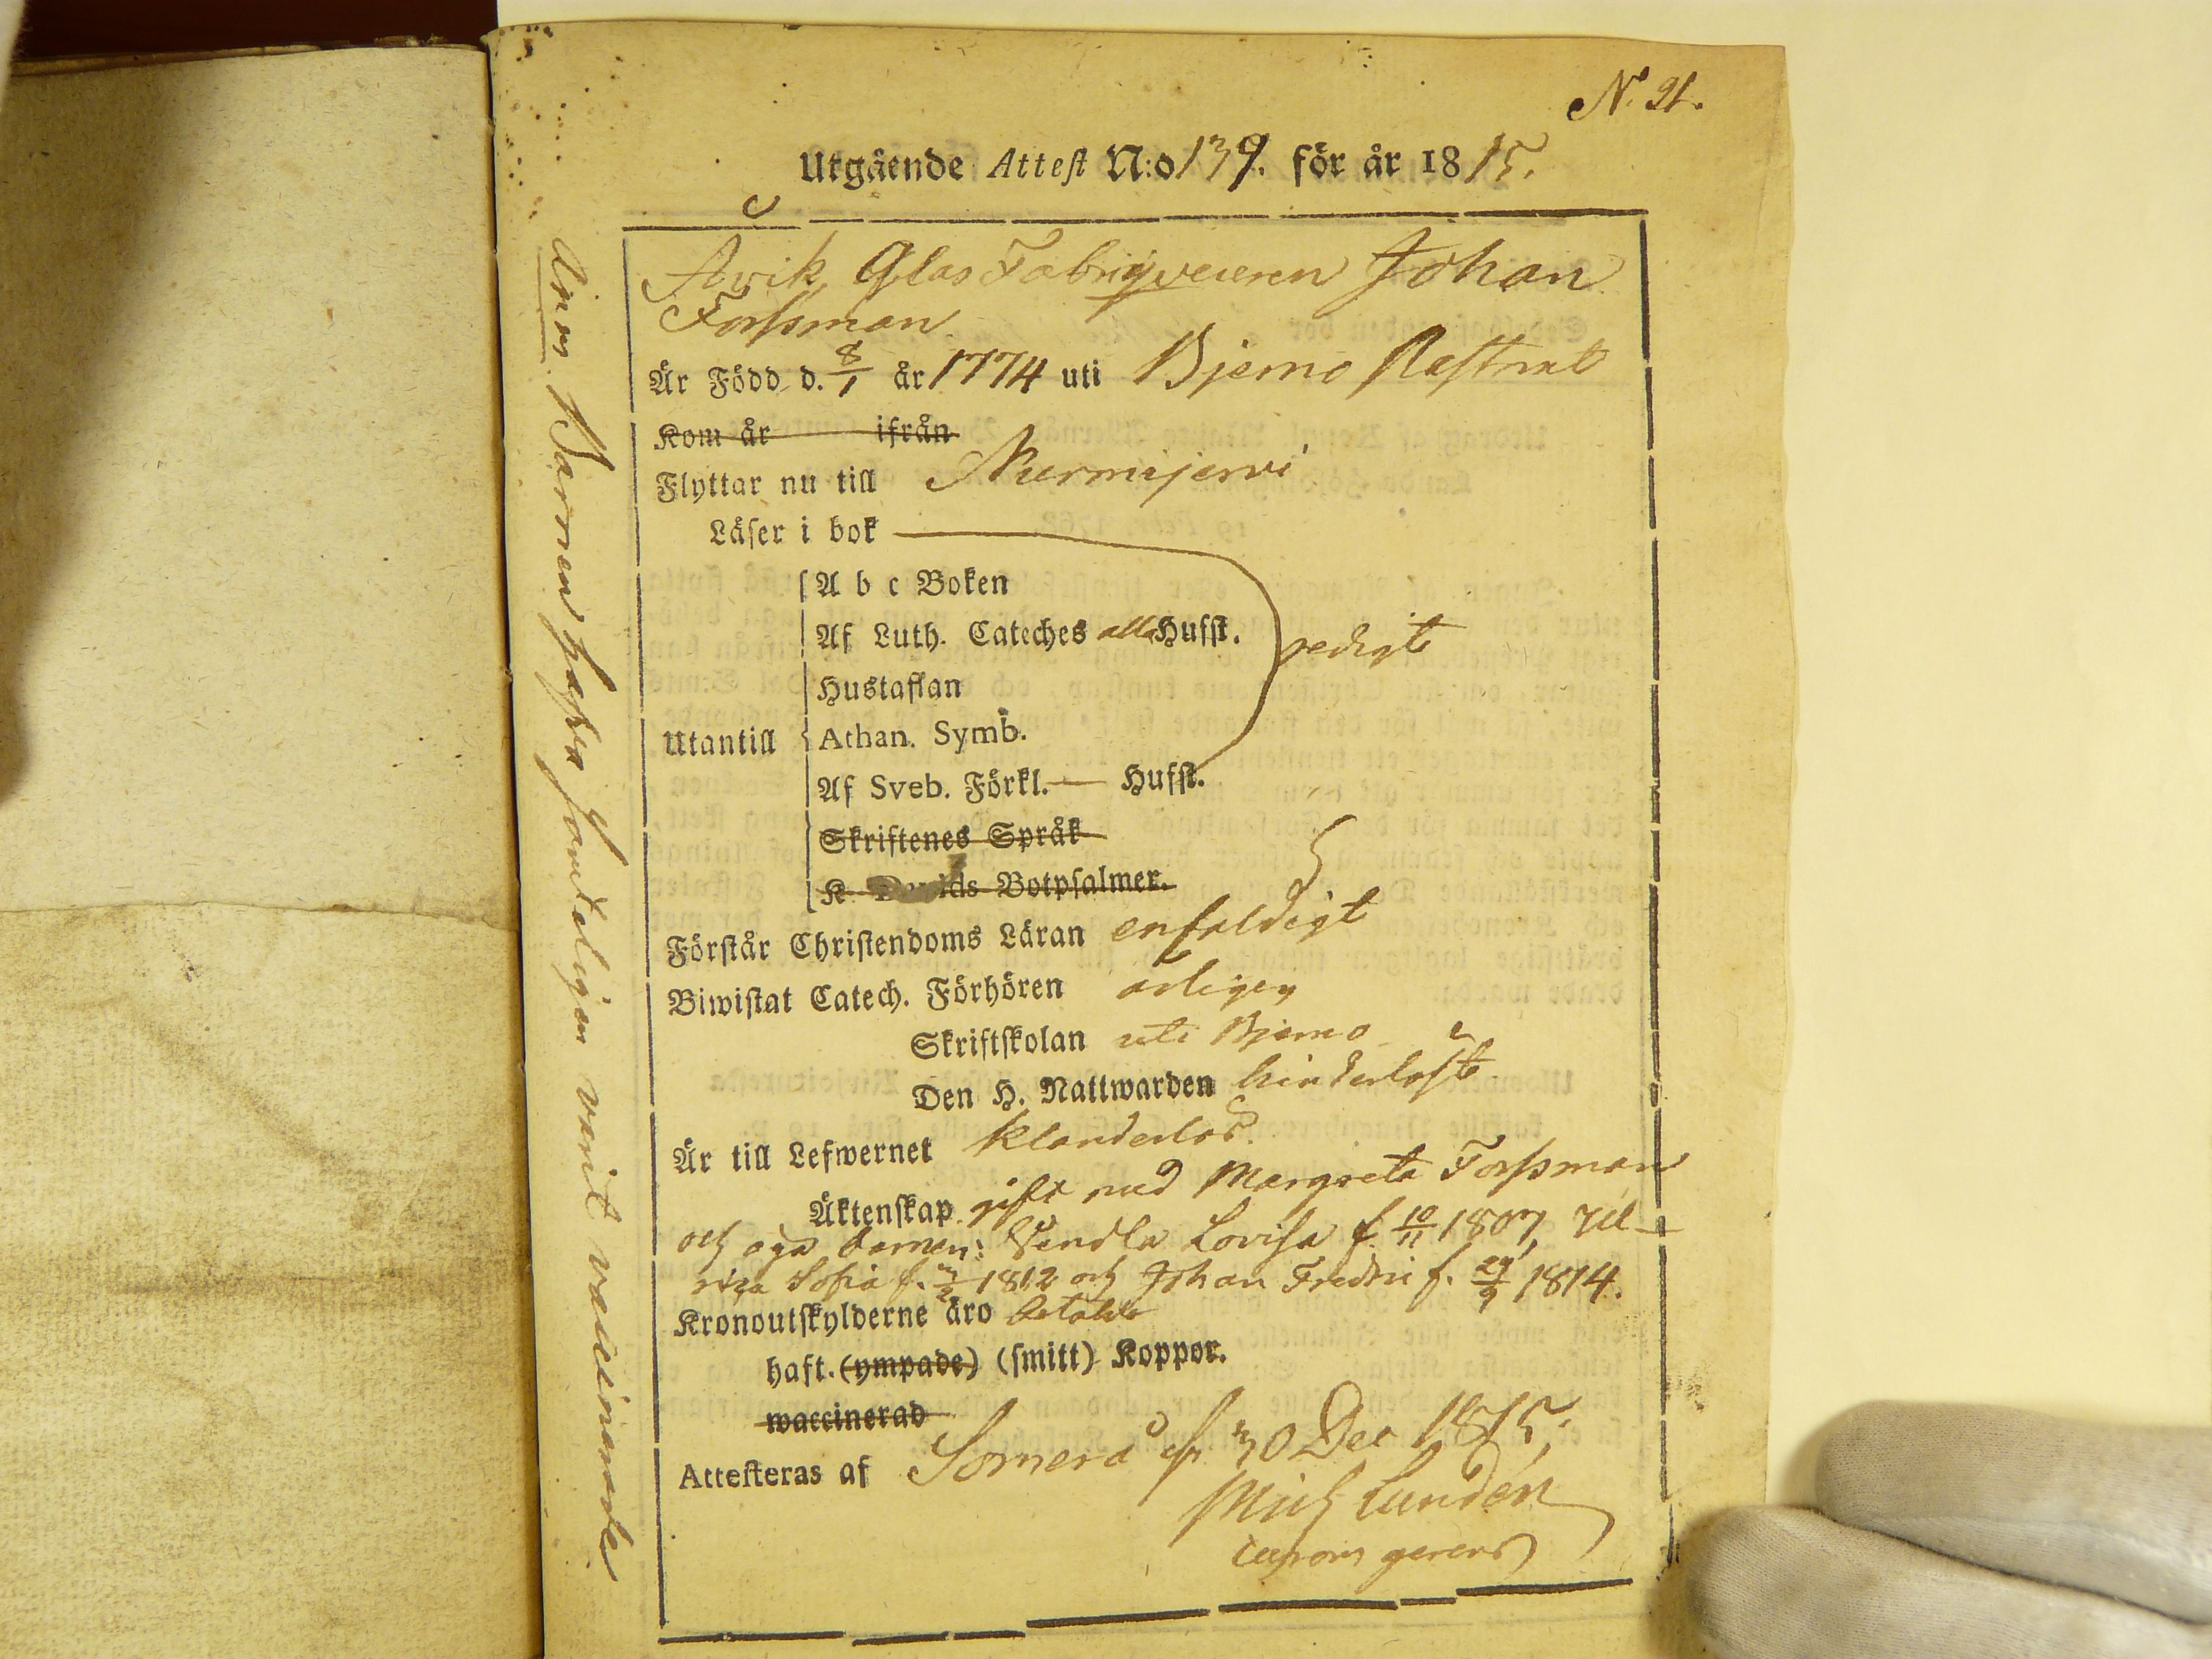 N. 91.
Utgående Attest N:o 139. för år 1815.
Åvik Glas Fabriqveuren Johan
Forssman
Är Född d. 8/1 år 1774 uti Bjerno Rastrat
Kom år ifrån
Flyttar nu till Nurmijervi
Läser i bok
A b c Boken
Af Luth. Cateches alla Hufst.
redigt
Hustaflan
Utantill Athan. Symb.
Af Sveb. Förkl. — Hufst.
Skriftenes Språk
K. Davids Botpsalmer.
Förstår Christendoms Läran enfaldigt
Biwistat Catech. Förhören arligen
Skriftskolan uti Bjerno
Den H. Nattwarden hinderlöst
Är till Lefwernet klanderlos
Äktenskap gift med Margreta Forssman
och äga barnen: Vendla Lovisa f. 10/11 1807, Ul-
rica Sofia f. 1812 och Johan Fredric f. 29/9 1814.
Kronoutskylderne äro betalde
haft. (ympade) (smitt) Koppor.
waccinerad
Attesteras af Somero d. 30 Dec 1815.
Mich Lunden
gerens
Anm. Barnen hafva samteligen varit vaccinerade